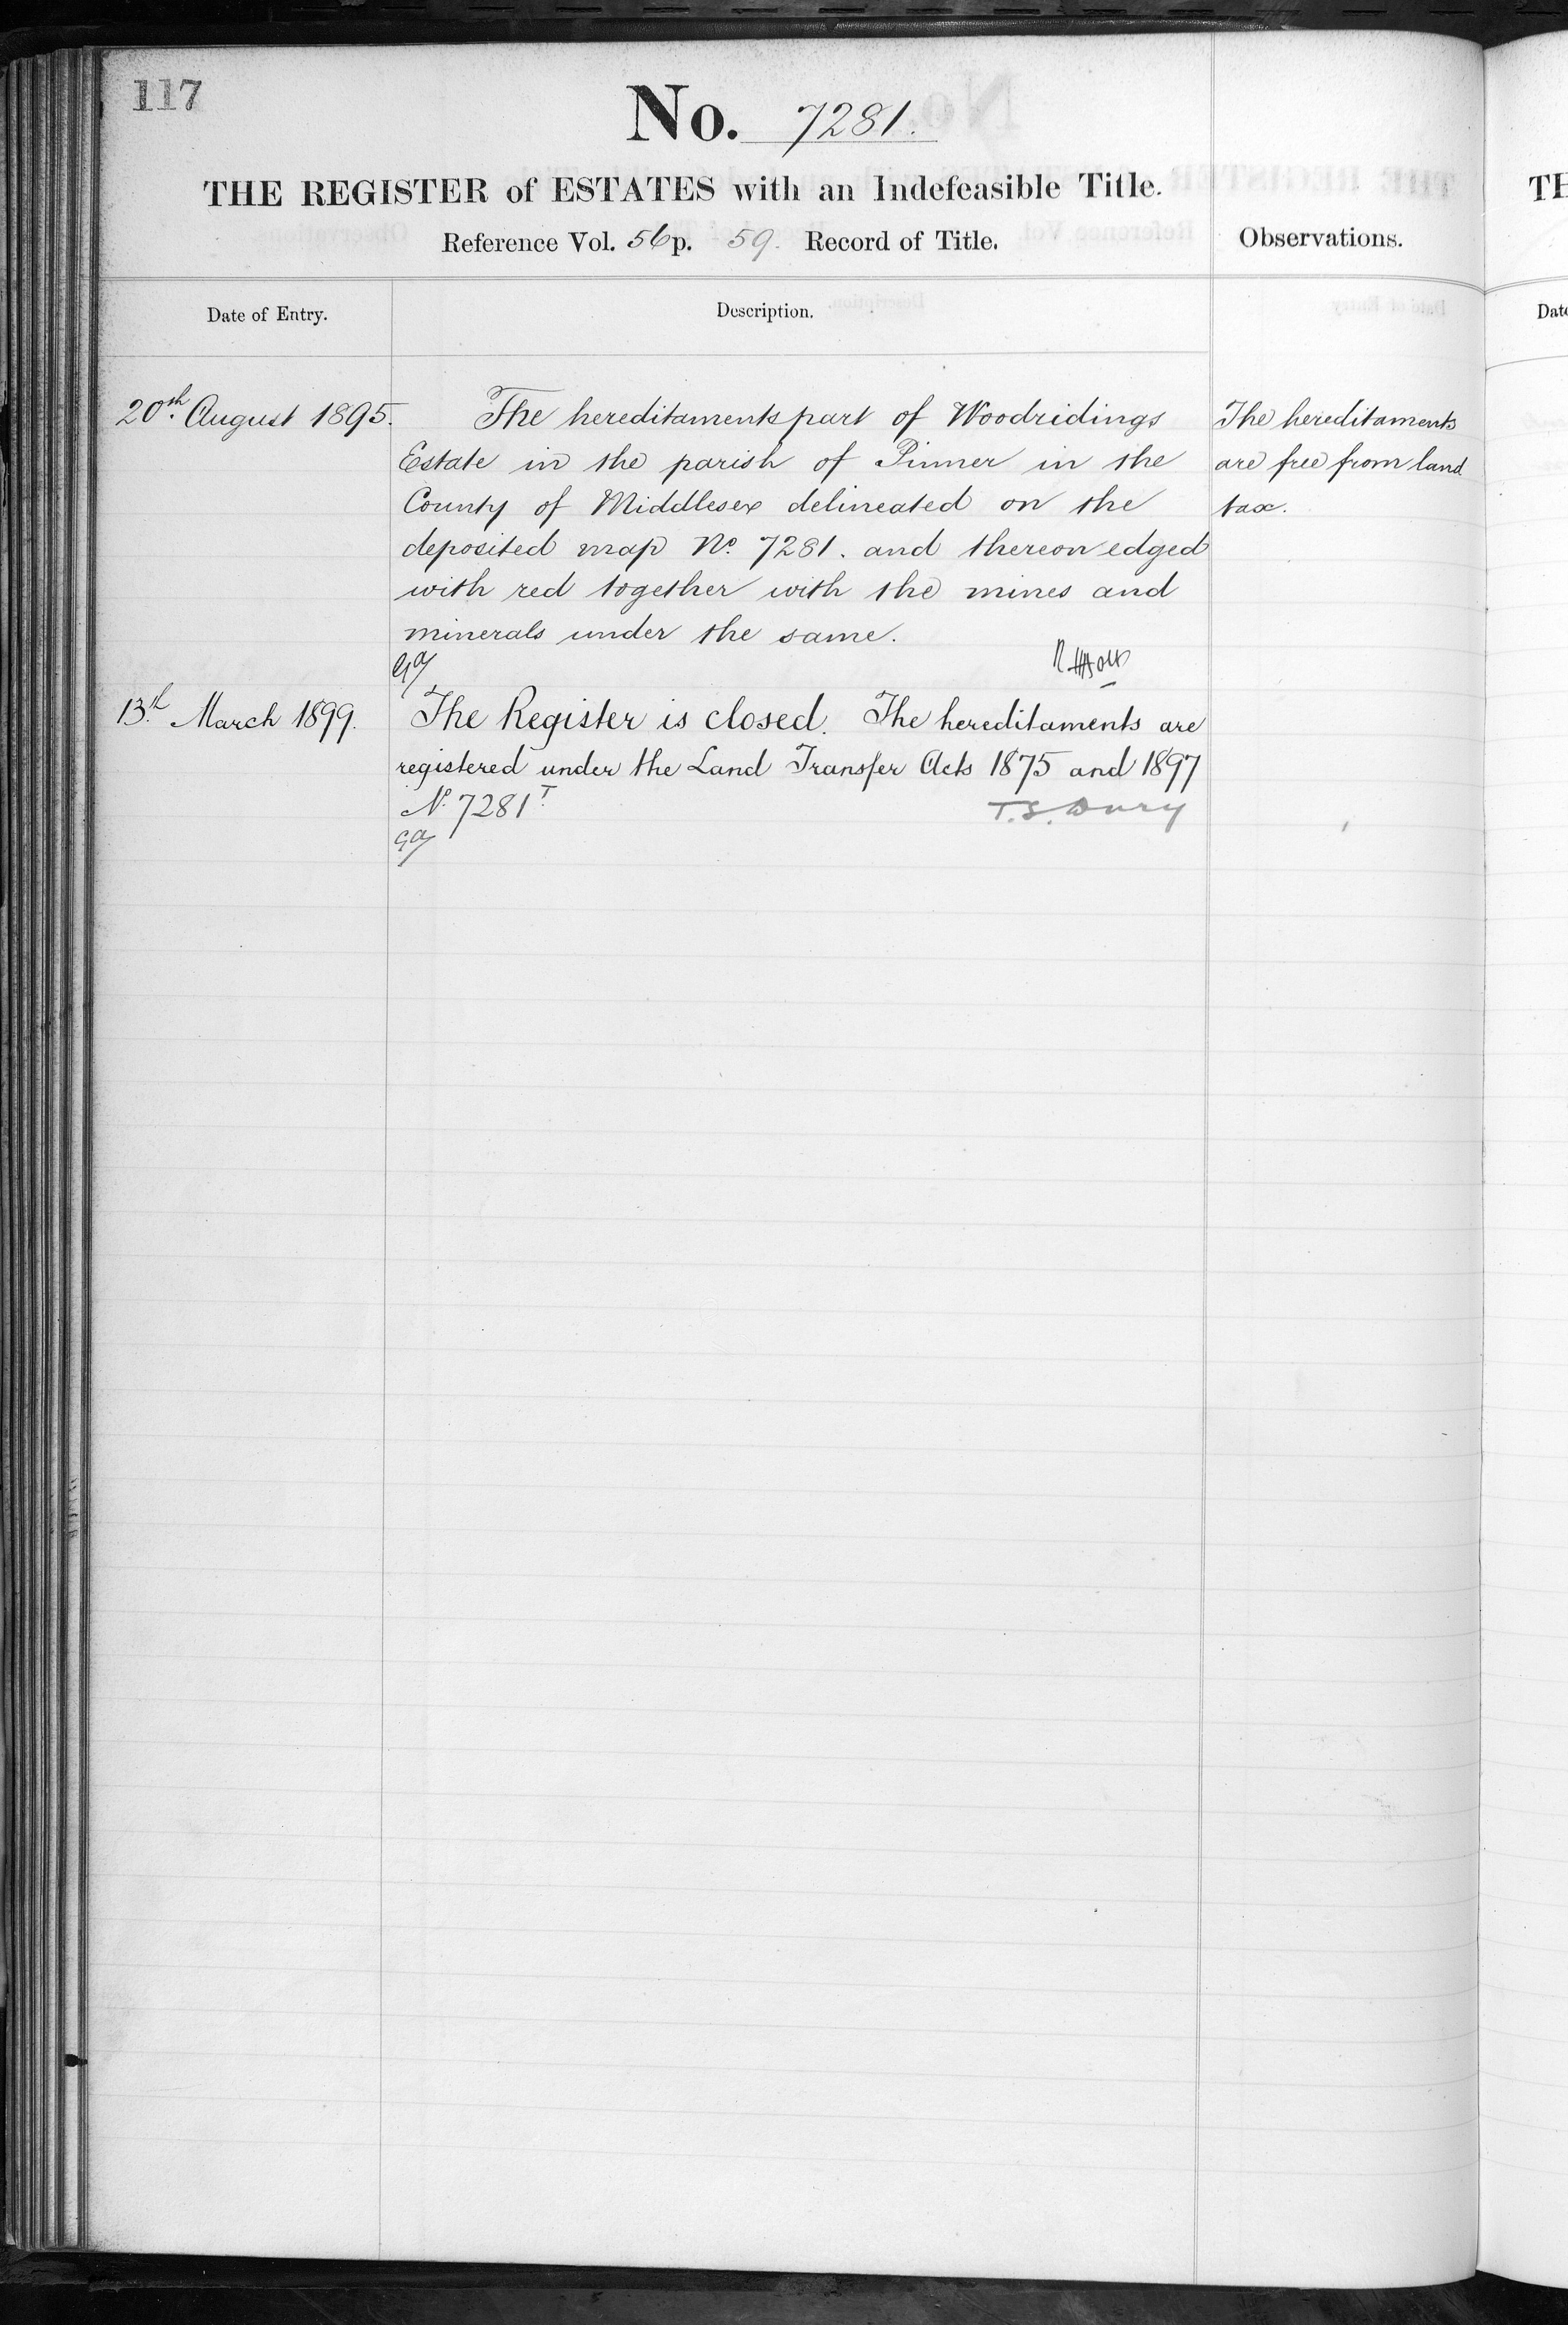 117
No. 7281.
THE REGISTER of ESTATES with an Indefeasible Title.
Reference Vol. 56 p. 59. Record of Title.
Observations.
Date of Entry.
Description.
20th. August 1895.
The hereditaments part of Woodridings
Estate in the parish of Pinner in the
County of Middlesex delineated on the
deposited map No. 7281. and thereon edged
with red together with the mines and
minerals under the same.
The hereditaments
are free from land
tax.
13th. March 1899.
The Register is closed. The hereditaments are
registered under the Land Transfer Acts 1875 and 1897
No. 7281T.
TH
Date